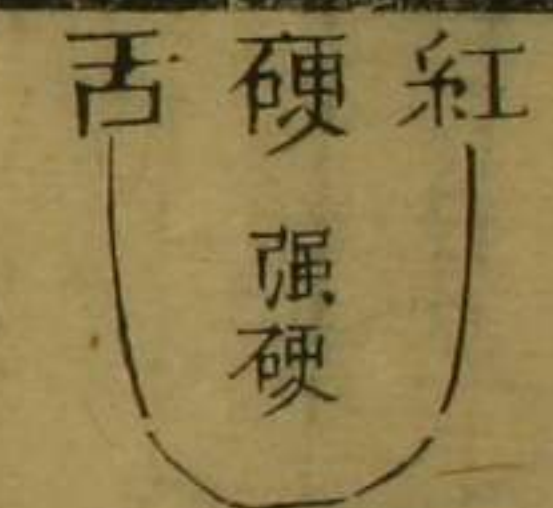 紅硬舌
强硬